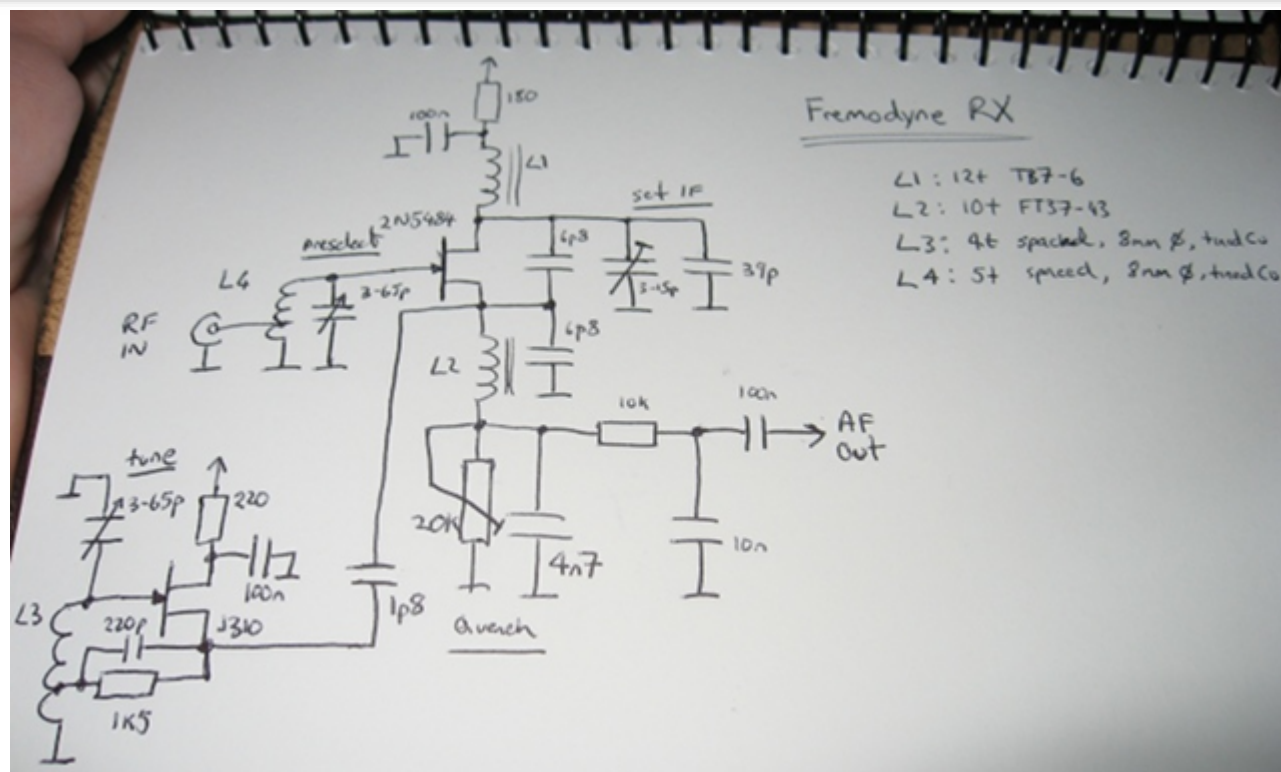 Fremodyne RX
L1: 12t T37-6
L2: 10t FT37-43
L3: 4t spaced, 8mm Ø, tind Cu
L4: 5t spaced, 8mm Ø, tind Cu
180
100n
L1
set IF
2N5484
Preselect
6p8
3-15p
39p
L4
3-65p
RF
IN
6p8
L2
10k
100n
AF
Out
tune
3-65p
220
20k
4n7
10n
100n
1p8
L3
220p
J310
Quench
1K5